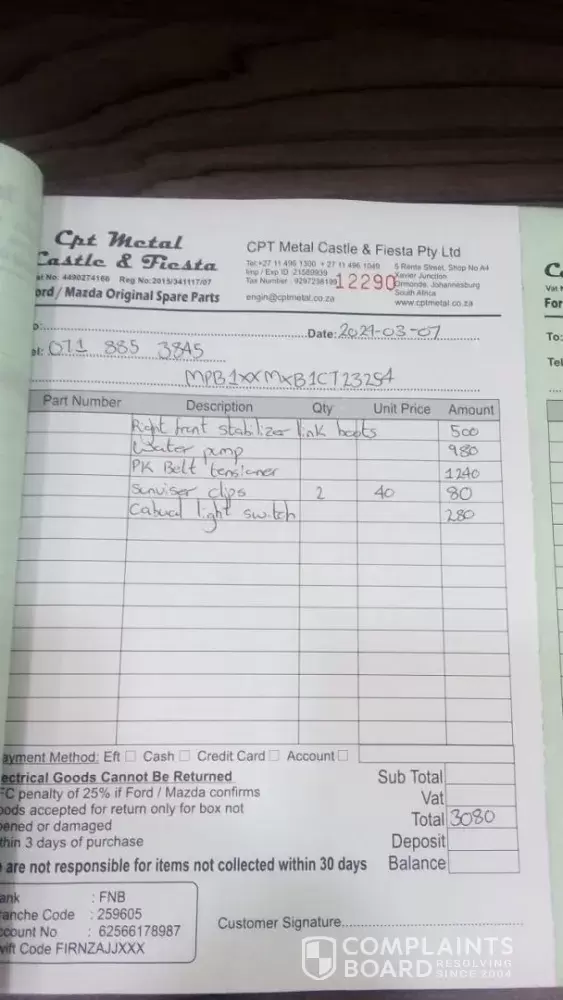 Cpt Metal
Castle & Fiesta
at No: 4490274166 Reg No:2015/341117/07
ord / Mazda Original Spare Parts
CPT Metal Castle & Fiesta Pty Ltd
Tel:+27 11 496 1300 +27 11 496 1049
Imp / Exp ID :21589939
Tax Number : 9297298199
12290
5 Rente Street, Shop No A4
Xavier Junction
Ormonde, Johannesburg
South Africa
engin@cptmetal.co.za
www.cptmetal.co.za
o:
Date: 2024-03-07
el: 071 885 3845
MPB1XXMXB1CT23254
Part Number Description Qty Unit Price Amount
Right front stabilizer link boots 500
Water pump 980
PK Belt tensioner 1240
Sunviser clips 2 40 80
light switch 280
ayment Method: Eft Cash Credit Card Account
ectrical Goods Cannot Be Returned
FC penalty of 25% if Ford / Mazda confirms
oods accepted for return only for box not
ened or damaged
thin 3 days of purchase
are not responsible for items not collected within 30 days
Sub Total
Vat
Total 3080
Deposit
Balance
ank : FNB
anche Code : 259605
ccount No : 62566178987
wift Code FIRNZAJJXXX
Customer Signature
C
Vat
For
To:
Tel
COMPLAINTS
BOARD RESOLVING
SINCE 2004